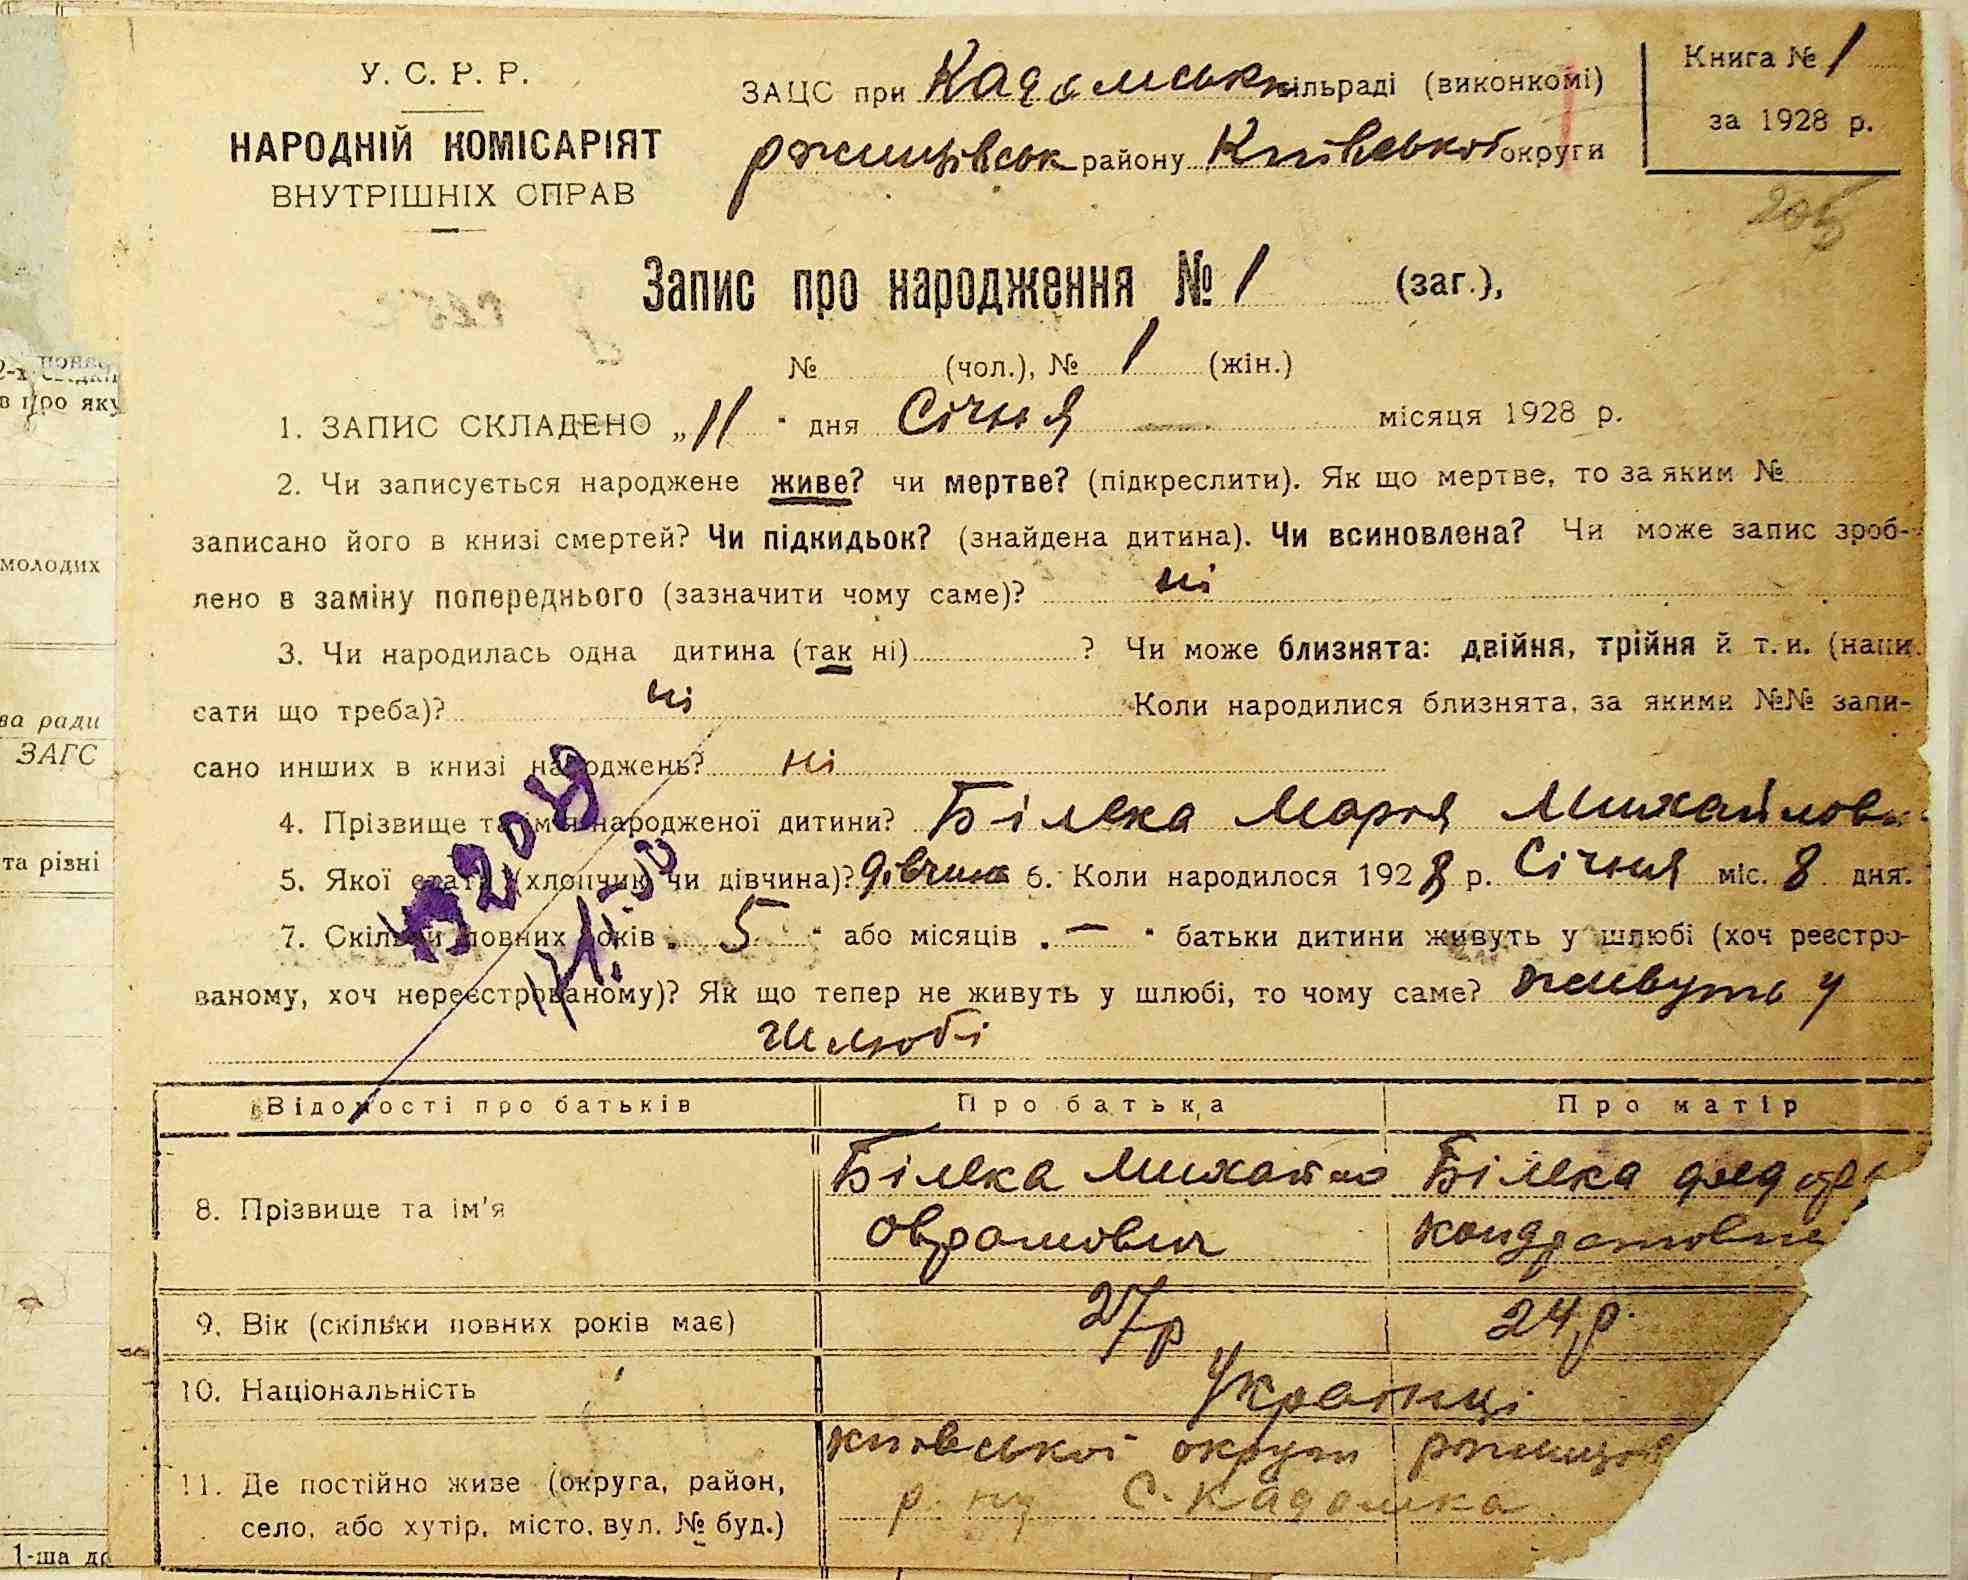 У. С. Р. Р.
НАРОДНІЙ КОМІСАРІЯТ
ВНУТРІШНІХ СПРАВ
ЗАЦС при Кадомськ сільраді (виконкомі)
ржищівськ району Київської округи
Книга № 1
за 1928 р.
205
Запис про народження № 1 (заг.),
№ (чол.), № 1 (жін.)
1. ЗАПИС СКЛАДЕНО „11" дня Січня місяця 1928 р.
2. Чи записується народжене живе? чи мертве? (підкреслити). Як що мертве, то за яким №
записано його в книзі смертей? Чи підкидьок? (знайдена дитина). Чи всиновлена? Чи може запис зроб-
лено в заміну попереднього (зазначити чому саме)? ні
3. Чи народилась одна дитина (так ні) ? Чи може близнята: двійня, трійня й т. и. (напи
сати що треба)? ні Коли народилися близнята, за якими №№ запи-
сано инших в книзі народжень? ні
4. Прізвище та ім'я народженої дитини? Білека Марія Михайлов
5. Якої статі (хлопчик чи дівчина)? дівчина 6. Коли народилося 1928 р. Січня міс. 8 дня.
7. Скільки повних років „ 5 " або місяців „ — " батьки дитини живуть у шлюбі (хоч реєстро-
ваному, хоч нереєстрованому)? Як що тепер не живуть у шлюбі, то чому саме? живуть у
шлюбі
Відомості про батьків Про батька Про матір
8. Прізвище та ім'я
Білека Михайло
Оврамович
Білека
9. Вік (скільки повних років має) 27 р 24 р.
10. Національність Українці
11. Де постійно живе (округа, район,
село, або хутір, місто, вул. № буд.)
київської округи ржищів
р. ну С. Кадомка
молодих
ва ради
ЗАГС
та рівні
1-ша